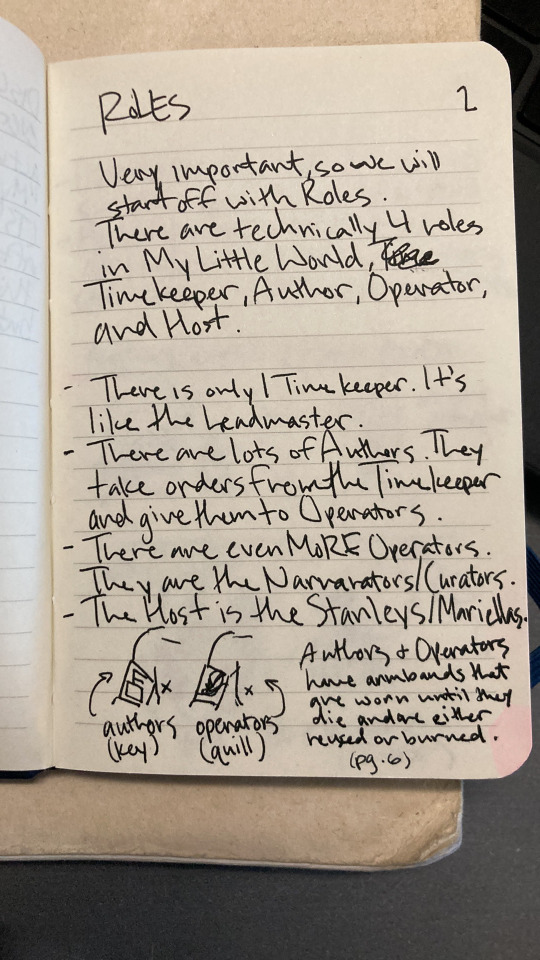 ROLES
2
Very important, so we will
start off with Roles.
There are technically 4 roles
in My Little World,
Timekeeper, Author, Operator,
and Host.
- There is only 1 Timekeeper. It's
like the Leadmaster.
- There are lots of Authors. They
take orders from the Timekeeper
and give them to Operators.
- There are even MoRE Operators.
They are the Narvarators/Curators.
- The Host is the Stanleys/Mariellas.
authors
(key)
operators
(quill)
Authors & Operators
have armbands that
are worn until they
die and are either
reused or burned.
(pg. 6)